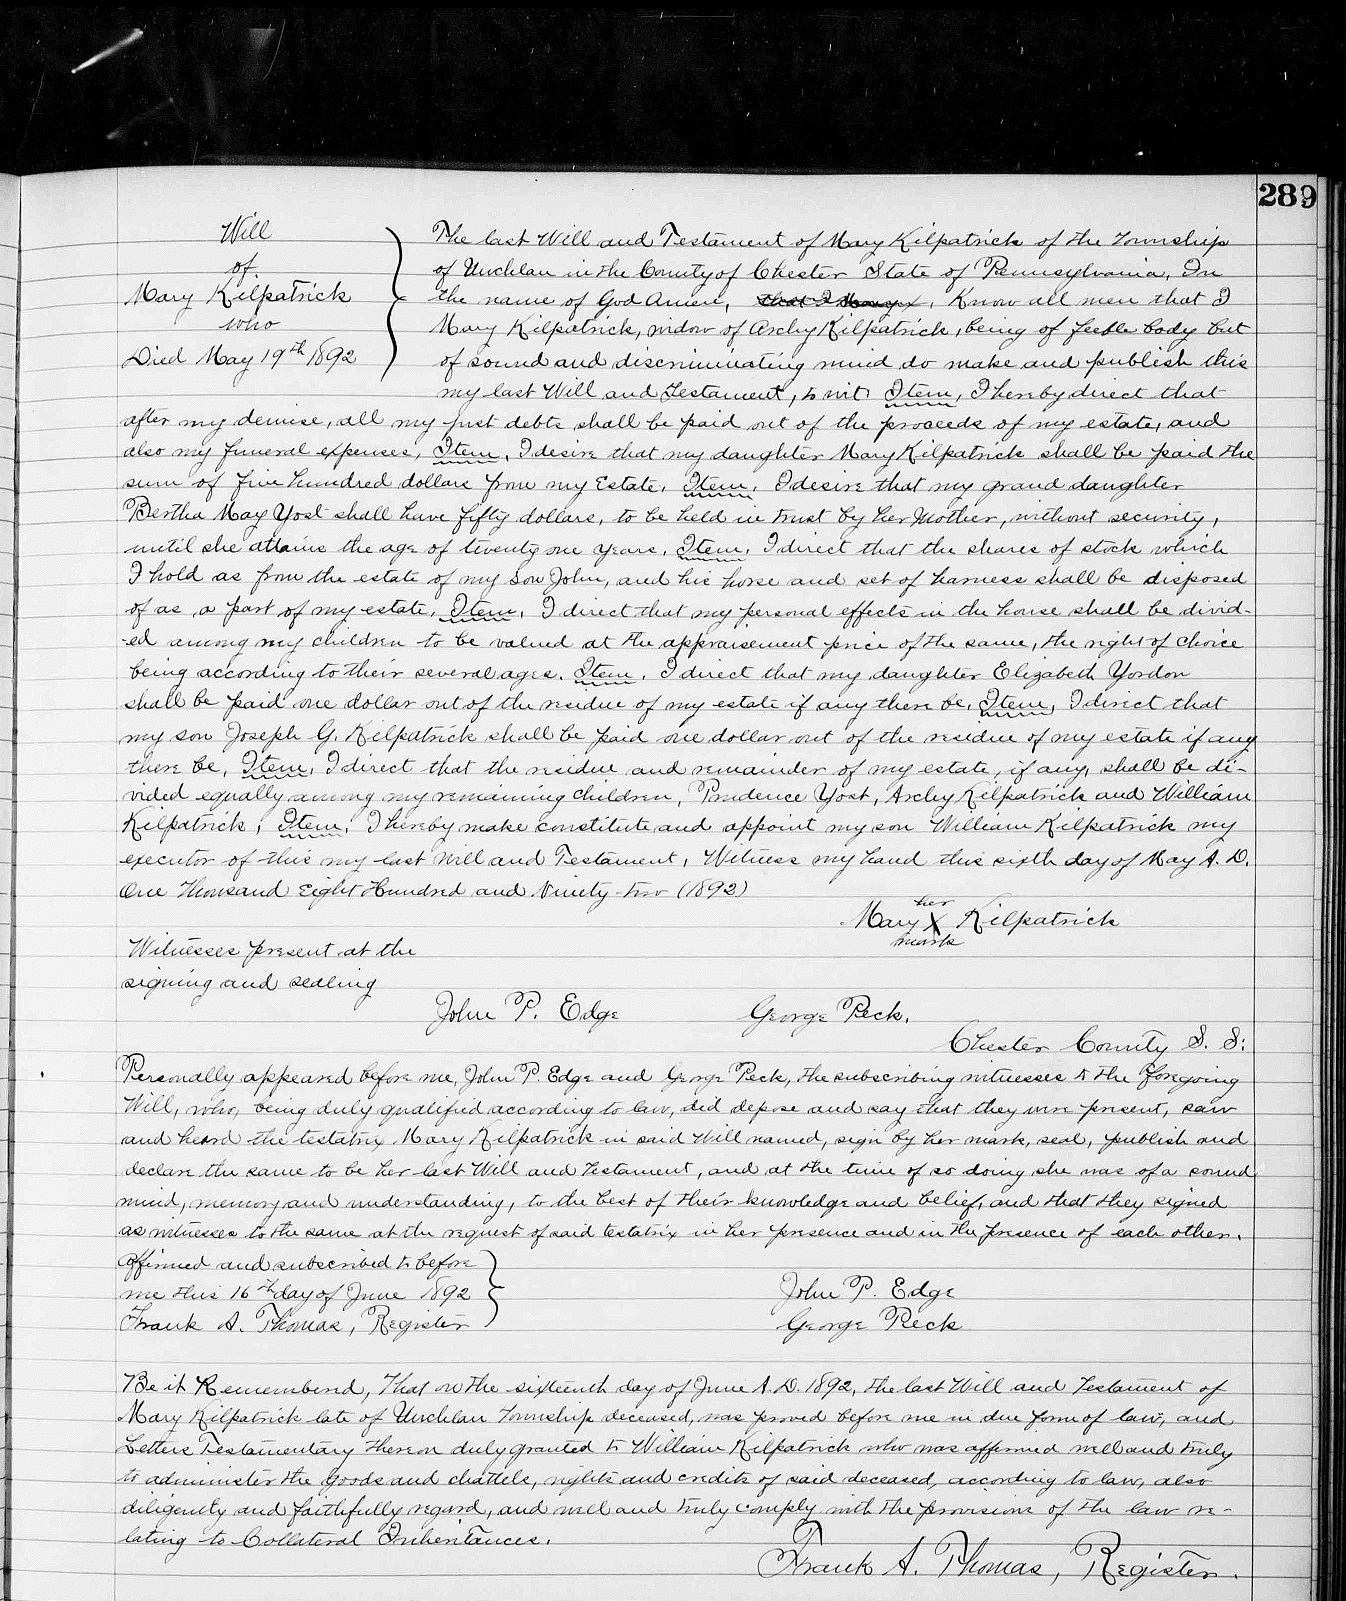 289
Will
of
Mary Kilpatrick
who
Died May 19th 1892
The last Will and Testament of Mary Kilpatrick of the Township
of Uwchlan in the County of Chester State of Pennsylvania, In
the name of God Amen, that I Mary x, Know all men that I
Mary Kilpatrick, widow of Archy Kilpatrick, being of feeble body but
of sound and discriminating mind do make and publish this
my last Will and Testament, to wit: Item, I hereby direct that
after my demise, all my just debts shall be paid out of the proceeds of my estate, and
also my funeral expenses, Item, I desire that my daughter Mary Kilpatrick shall be paid the
sum of five hundred dollars from my Estate. Item, I desire that my grand daughter
Bertha May Yost shall have fifty dollars, to be held in trust by her Mother, without security,
until she attains the age of twenty one years. Item, I direct that the shares of stock which
I hold as from the estate of my Son John, and his horse and set of harness shall be disposed
of as a part of my estate. Item, I direct that my personal effects in the house shall be divid-
-ed among my children to be valued at the appraisement price of the same, the right of choice
being according to their several ages. Item, I direct that my daughter Elizabeth Yordon
shall be paid one dollar out of the residue of my estate if any there be. Item, I direct that
my son Joseph G. Kilpatrick shall be paid one dollar out of the residue of my estate if any
there be, Item, I direct that the residue and remainder of my estate, if any, shall be di-
vided equally among my remaining children, Prudence Yost, Archy Kilpatrick and William
Kilpatrick, Item, I hereby make constitute and appoint my son William Kilpatrick my
executor of this my last Will and Testament, Witness my hand this sixth day of May A. D.
One Thousand Eight Hundred and Ninety-two (1892)
her
Mary X Kilpatrick
mark
Witnesses present at the
signing and sealing
John P. Edge George Peck.
Chester County S. S:
Personally appeared before me, John P. Edge and George Peck, the subscribing witnesses to the foregoing
Will, who, being duly qualified according to law, did depose and say that they were present, saw
and heard the testatrix Mary Kilpatrick in said Will named, sign by her mark, seal, publish and
declare the same to be her last Will and Testament, and at the time of so doing she was of a sound
mind, memory and understanding, to the best of their knowledge and belief, and that they signed
as witnesses to the same at the request of said testatrix in her presence and in the presence of each other.
Affirmed and subscribed to before
me this 16th day of June 1892
Frank A. Thomas, Register
John P. Edge
George Peck
Be it Remembered, That on the sixteenth day of June A. D. 1892, the last Will and Testament of
Mary Kilpatrick late of Uwchlan Township deceased, was proved before me in due form of law, and
Letters Testamentary thereon duly granted to William Kilpatrick who was affirmed well and truly
to administer the goods and chattels, rights and credits of said deceased, according to law, also
diligently and faithfully regard, and well and truly comply with the provisions of the law re-
lating to Collateral Inheritances.
Frank A. Thomas, Register.